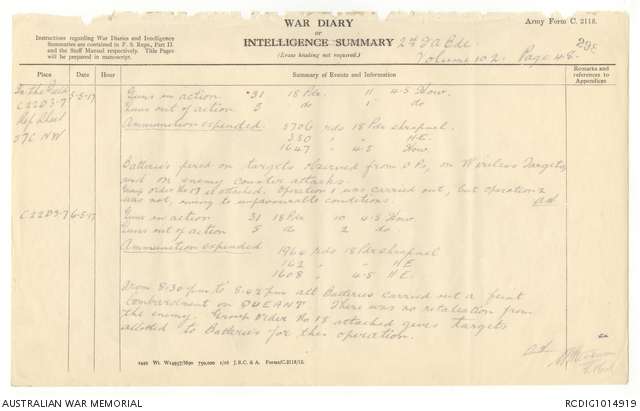 WAR DIARY
OR
INTELLIGENCE SUMMARY
(Erase heading not required.)
Army Form C. 2118.
Instructions regarding War Diaries and Intelligence
Summaries are contained in F. S. Regs., Part II.
and the Staff Manual respectively. Title Pages
will be prepared in manuscript.
2d F A Bde.
Volume 102. Page 48.
Place Date Hour Summary of Events and Information Remarks and references to Appendices
In the Field 5-5-17 Guns in action 31 18 Pdr. 11 4.5 How.
C22D3-7 Guns out of action 5 do 1 do
Ref Sheet Ammunition expended 5706 rds 18 Pdr shrapnel.
57C NW 350 " " H.E.
1647 " 4.5 How.
Batteries fired on targets observed from O Ps, on Wireless Targets
and on enemy counter attacks.
Group Order No 17 is attached. Operation 1 was carried out, but operation 2
was not, owing to unfavourable conditions.
C22D3-7 6-5-17 Guns in action 31 18 Pdr 10 4.5 How.
Guns out of action 5 do 2 do.
Ammunition expended 1964 rds 18 Pdr shrapnel
162 " " HE
1608 " 4.5 HE.
From 8.30 pm to 8.42 pm all Batteries carried out a feint
bombardment on QUEANT. There was no retaliation from
the enemy. Group Order No 18 attached gives targets
allotted to Batteries for this operation.
AUSTRALIAN WAR MEMORIAL
RCDIG1014919